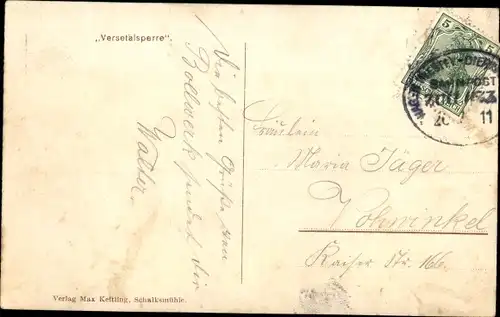 „Versetalsperre“.
Die besten Grüße von
Bollwerk sendet Dir
Walter.
Verlag Max Kettling, Schalksmühle.
5
5
BAHNPOST
11
Fräulein
Maria Jäger
Vohwinkel
Kaiser Str. 166.